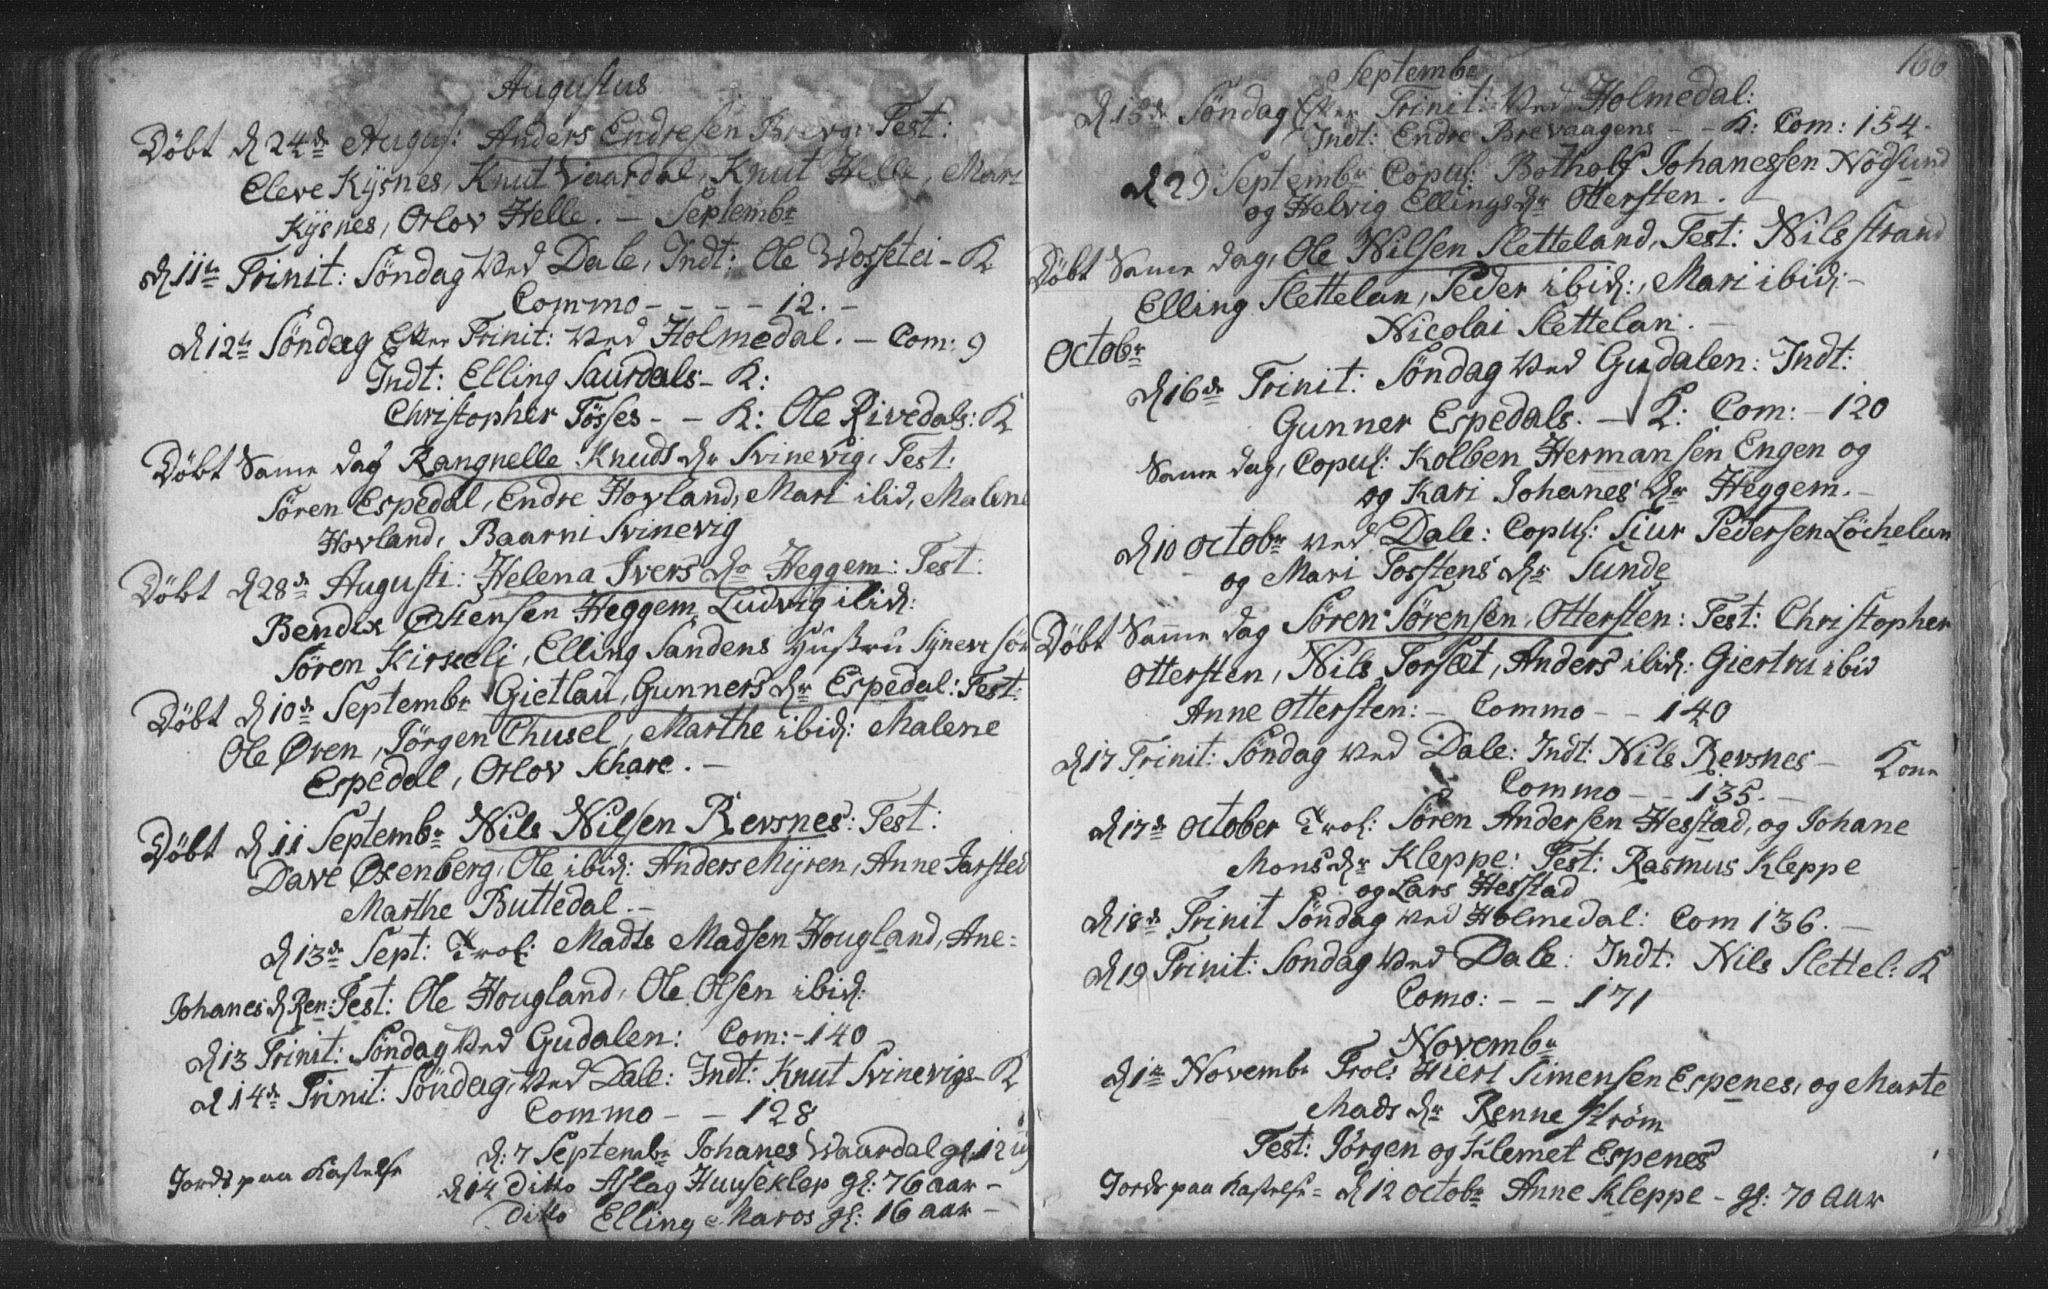 Augustus
Döbt d 24de August: Anders Endresen Brevig: Test:
Eleve Kysnes, Knut Vaardal, Knut Helle, Mari
Kysnes, Orlov Helle. – Septembr
d 11te Trinit: Söndag ved Dale, Indt: Ole Wossetei – K
Commo – – – – 12. –
d 12te Söndag Efter Trinit: ved Holmedal. – Com: 9
Indt: Elling Saurdals – K:
Christopher Tösses – – K: Ole Rivedals: K
Döbt Same dag Rangnelle Knuds dr Svinevig, Test:
Sören Espedal, Endre Hovland, Mari ibid, Malene
Hovland, Baarni Svinevig
Döbt d 28de Augusti: Helena Ivers dr Heggem: Test:
Bendix Østensen Heggem, Ludvig ibid:
Sören Kirkeli, Elling Sandens Hustru Syneve
Döbt d 10de Septembr Gietlau, Gunners dr Espedal: Test:
Ole Øren, Jörgen Chusel, Marthe ibid: Malene
Espedal, Orlov Schare. –
Döbt d 11 Septembr Nils Nilsen Revsnes: Test:
Dave Øxenberg, Ole ibid: Anders Myren, Anne Jarsted
Marthe Buttedal. –
d 13de Sept: Trol: Madts Madsen Hougland, Ane
Johanes d Ren: Test: Ole Hougland, Ole Olsen ibid:
d 13 Trinit: Söndag ved Gudalen: Com: – 140
d 14de Trinit: Söndag, ved Dale: Indt: Knut Svinevigs – K
Commo – – 128
d: 7 Septembr Johanes Waardal gl: 12 ug
Jords paa Kastelse d 14 ditto Aslag Huuseklep gl: 76 aar –
ditto Elling Maros gl: 16 aar –
166
Septembr
d 15de Söndag Efter Trinit: ved Holmedal:
Indt: Endre Brevaagens – – K: Com: 154.
d 29 Septembr Copul: Botholf Johanessen Nödsund
og Helvig Ellings dr Ottersten. –
Döbt Same dag, Ole Nilsen Sletteland, Test: Nils Strand
Elling Slettelan, Peder ibid:, Mari ibid: –
Nicolai Slettelan. –
Octobr
d 16de Trinit: Söndag ved Gudalen: Indt:
Gunner Espedals. – K: Com: – 120
Same dag, Copul: Kolben Hermansen Engen og
og Kari Johanes dr Heggem. –
d 10 Octobr ved Dale: Copul: Siur Pedersen Löchelan
og Mari Torstens dr Sunde
Döbt Samme dag Sören Sörensen, Ottersten: Test: Christopher
Ottersten, Nils Jorsæt, Anders ibid: Giertru ibid
Anne Ottersten: – Commo – – 140
d 17 Trinit: Söndag ved Dale: Indt: Nils Revsnes – Kone
Commo – – 135. –
d 17de October Trol: Sören Andersen Hesstad, og Johane
Mons dr Kleppe: Test: Rasmus Kleppe
og Lars Hesstad
d 18de Trinit Söndag ved Holmedal: Com 136. –
d 19 Trinit: Söndag ved Dale: Indt: Nils Slettel: K
Como: – – 171
Novembr
d 1te Novembr Trol: Hieri Simensen Espenes, og Marte
Mads dr Renneström
Test: Jörgen og Klemet Espenes
Jords paa Kastelse – d 12 octobr Anne Kleppe – gl: 70 Aar